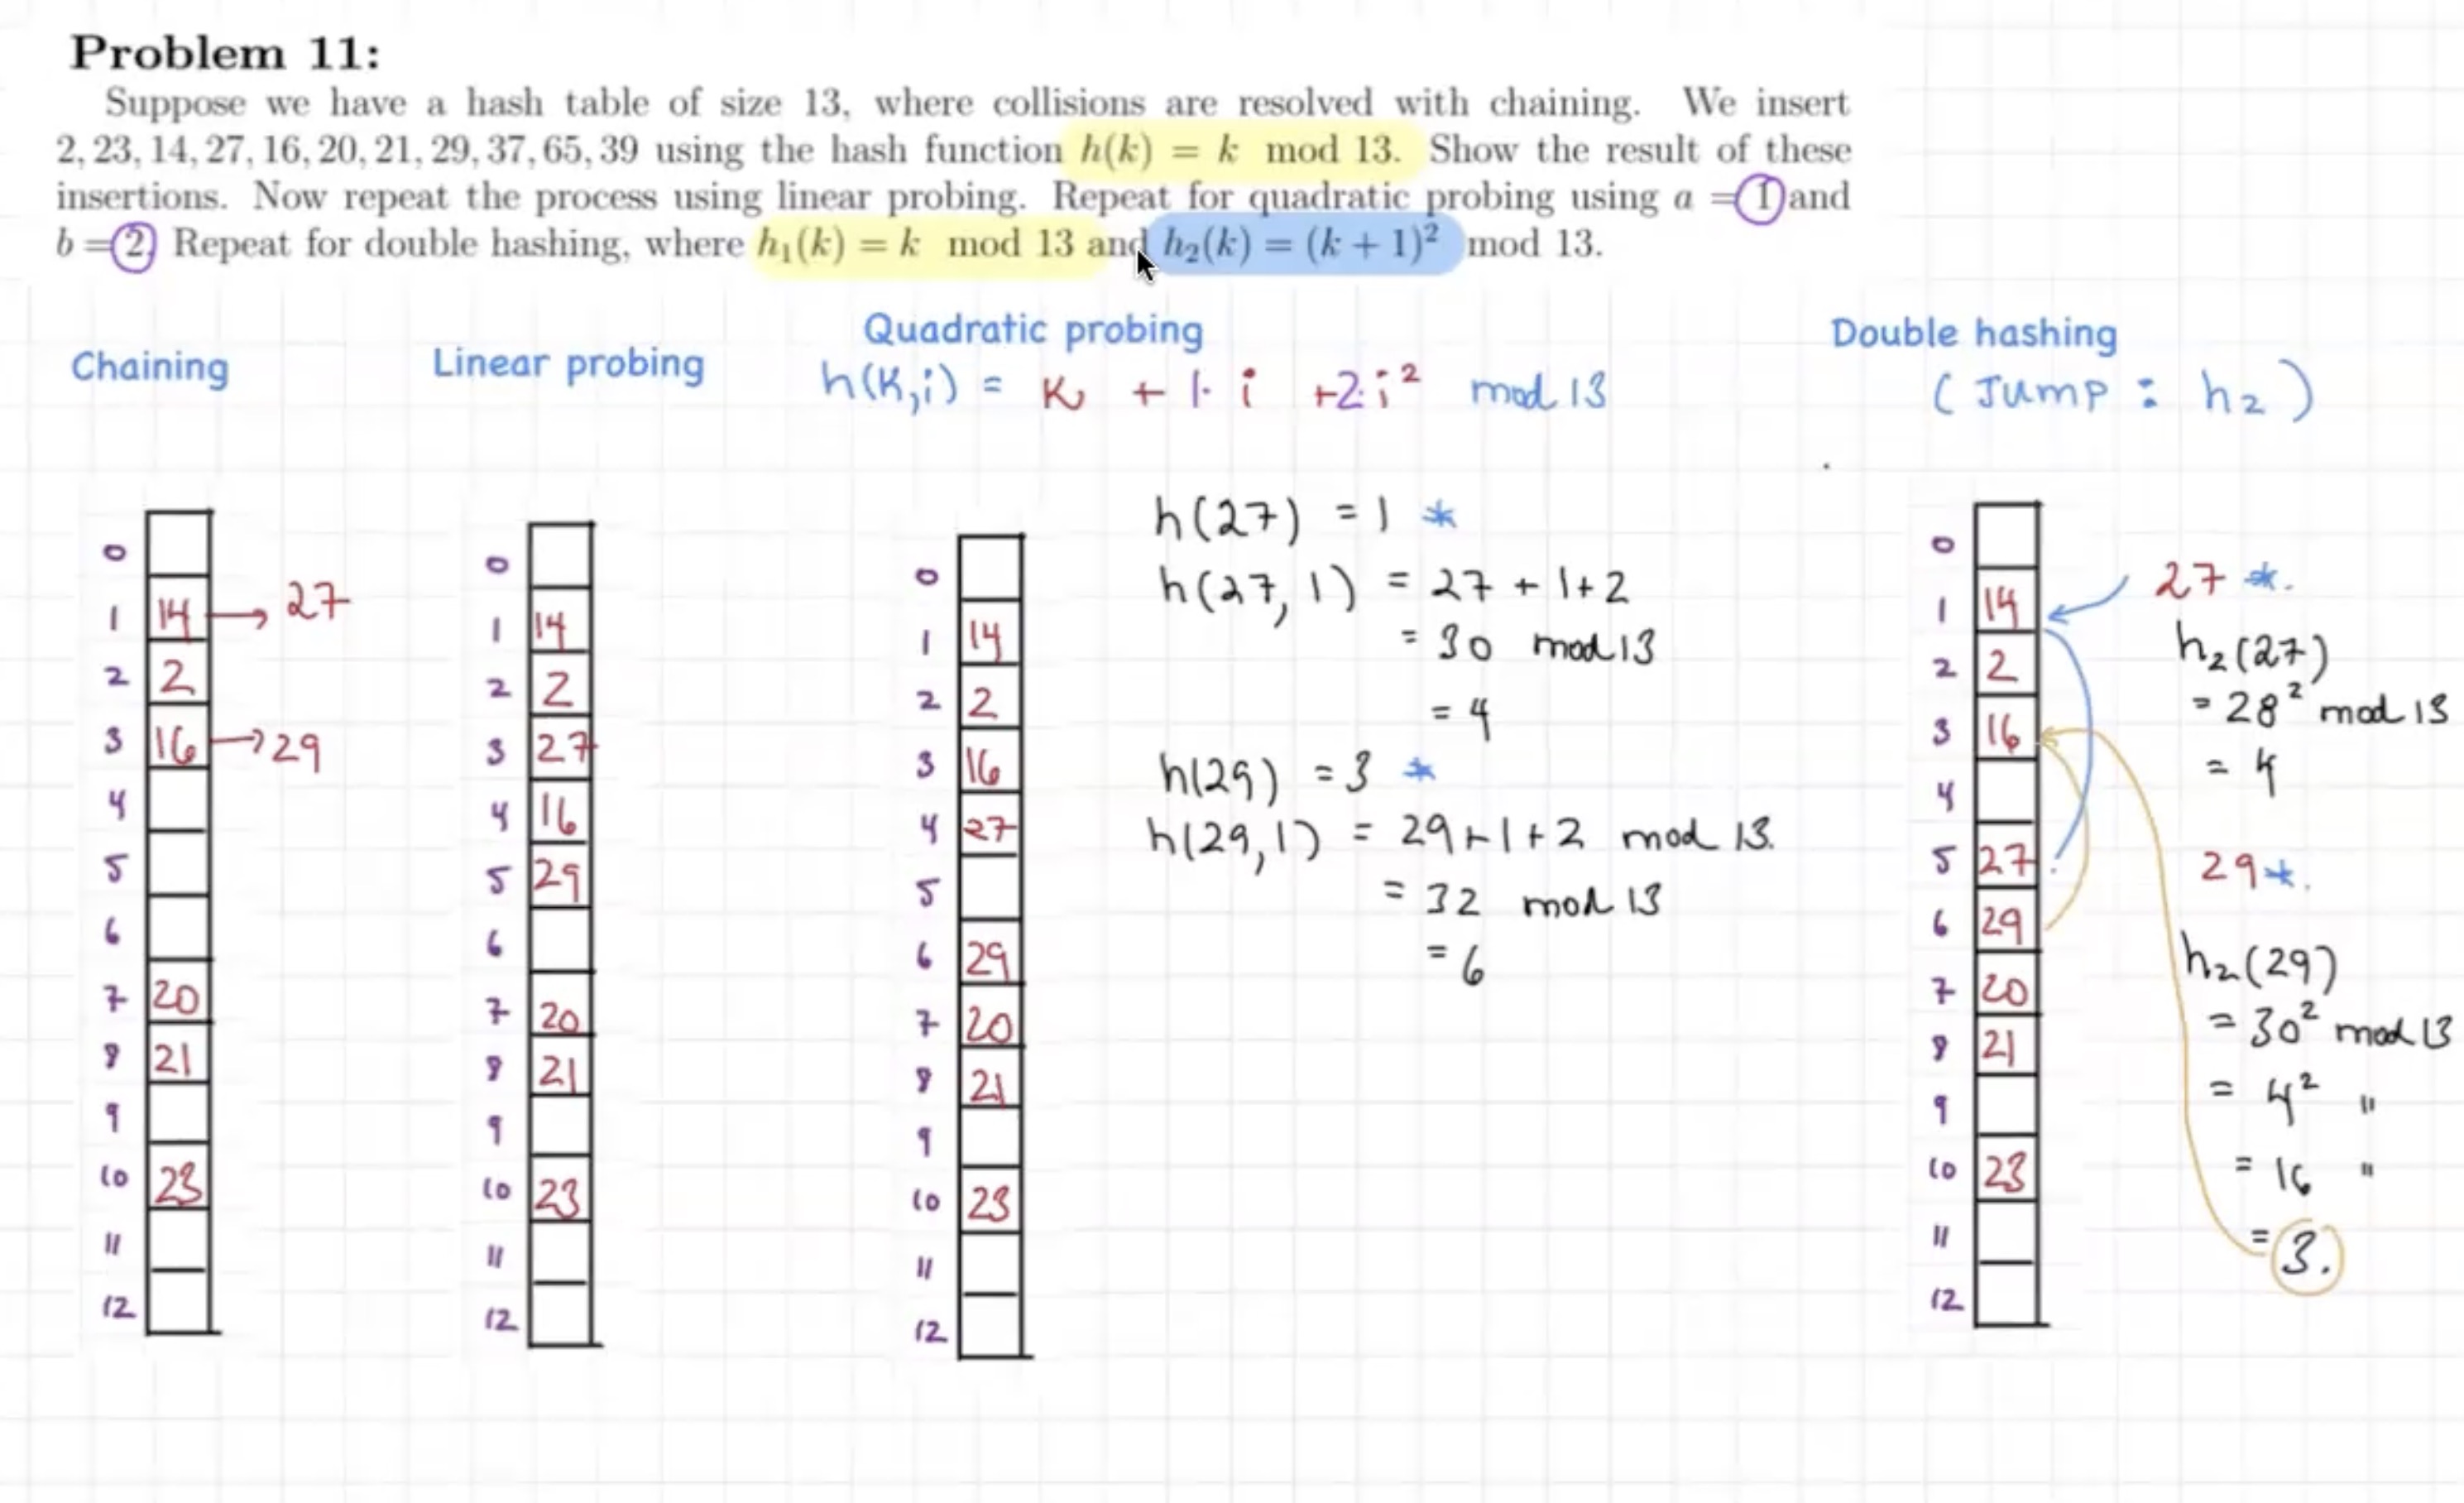 Problem 11:
Suppose we have a hash table of size 13, where collisions are resolved with chaining. We insert
2, 23, 14, 27, 16, 20, 21, 29, 37, 65, 39 using the hash function h(k) = k mod 13. Show the result of these
insertions. Now repeat the process using linear probing. Repeat for quadratic probing using a = 1 and
b = 2. Repeat for double hashing, where h₁(k) = k mod 13 and h₂(k) = (k + 1)² mod 13.
Chaining
0
1 14 → 27
2 2
3 16 → 29
4
5
6
7 20
8 21
9
10 23
11
12
Linear probing
0
1 14
2 2
3 27
4 16
5 29
6
7 20
8 21
9
10 23
11
12
Quadratic probing
h(K,i) = K + 1· i +2·i² mod 13
0
1 14
2 2
3 16
4 27
5
6 29
7 20
8 21
9
10 23
11
12
h(27) = 1 *
h(27, 1) = 27 + 1+2
= 30 mod 13
= 4
h(29) = 3 *
h(29,1) = 29+1+2 mod 13.
= 32 mod 13
= 6
Double hashing
(Jump : h₂)
0
1 14
2 2
3 16
4
5 27
6 29
7 20
8 21
9
10 23
11
12
27 *.
h₂(27)
= 28² mod 13
= 4
29 *.
h₂(29)
= 30² mod 13
= 4² "
= 16 "
= 3.